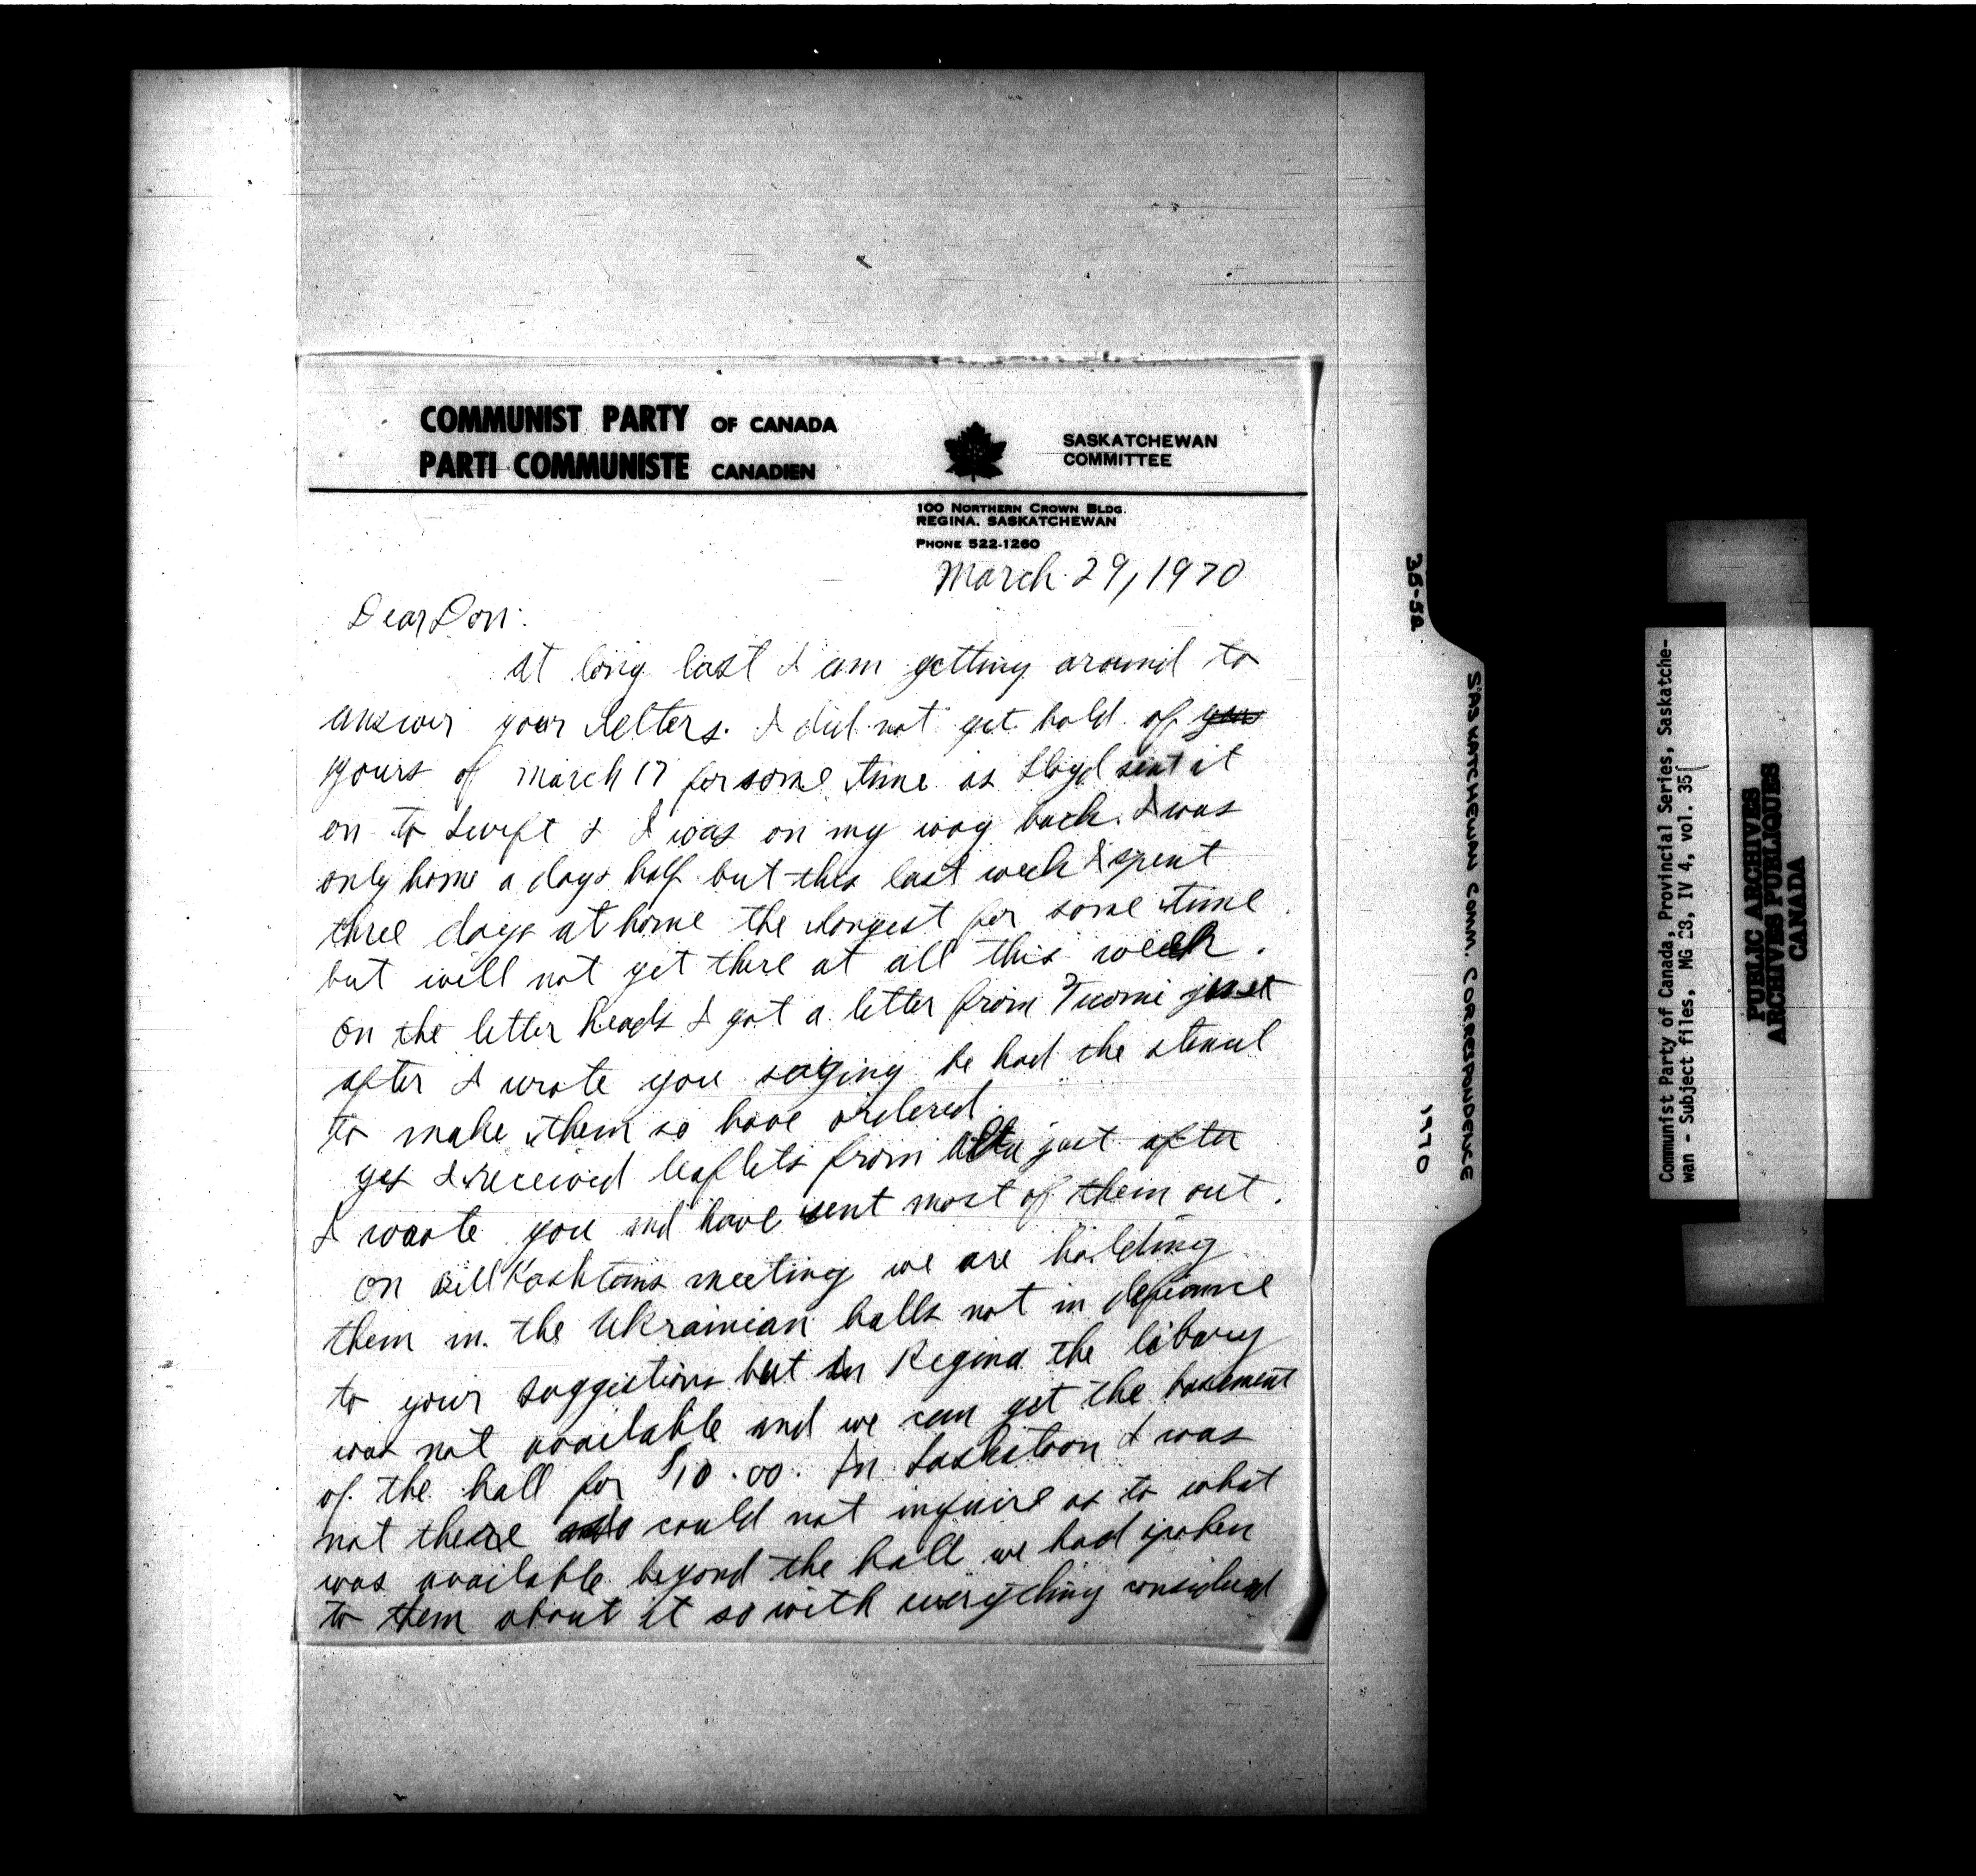 COMMUNIST PARTY OF CANADA
PARTI COMMUNISTE CANADIEN
SASKATCHEWAN
COMMITTEE
100 NORTHERN CROWN BLDG.
REGINA, SASKATCHEWAN
PHONE 522-1260
March 29, 1970
Dear Don:
At long last I am getting around to
answer your letters. I did not get hold of
yours of March 17 for some time as Lloyd sent it
on to Swift & I was on my way back. I was
only home a day & half but this last week I spent
three days at home the longest for some time
but will not get there at all this week.
On the letter heads I got a letter from Tuomi just
after I wrote you saying he had the stencil
to make them so have ordered.
yes I received leaflets from Alta just after
I wrote you and have sent most of them out.
On Bill Kashtans meeting we are holding
them in the Ukrainian halls not in defiance
to your suggestions but in Regina the libary
was not available and we can get the basement
of the hall for $10.00. In Saskatoon I was
not there so could not inquire as to what
was available beyond the hall we had spoken
to them about it so with everything considered
35-52
SASKATCHEWAN COMM. CORRESPONDENCE
1970
Communist Party of Canada, Provincial Series, Saskatche-
wan - Subject files, MG 28, IV 4, vol. 35
PUBLIC ARCHIVES
ARCHIVES PUBLIQUES
CANADA